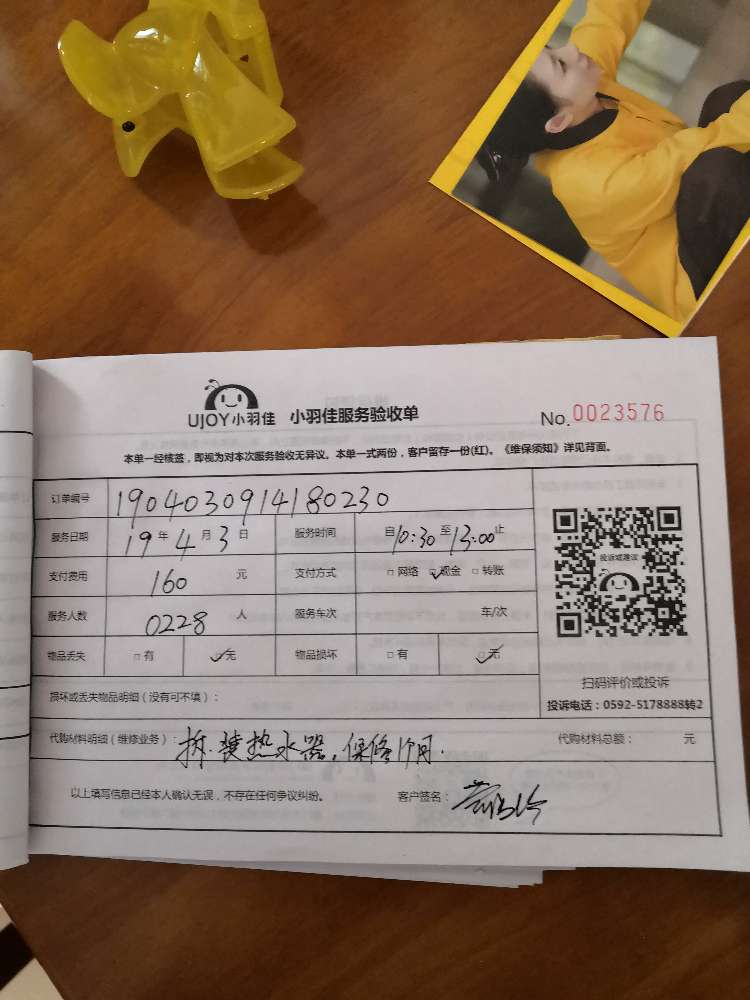 UJOY小羽佳 小羽佳服务验收单 No.0023576
本单一经核签，即视为对本次服务验收无异议。本单一式两份，客户留存一份(红)。《维保须知》详见背面。
订单编号 1904030914180230
服务日期 19年4月3日 服务时间 自10:30至13:00止
支付费用 160元 支付方式 □网络 ☑现金 □转账
服务人数 0228人 服务车次 车/次
物品丢失 □有 ☑无 物品损坏 □有 ☑无
投诉或建议
扫码评价或投诉
投诉电话：0592-5178888转2
损坏或丢失物品明细（没有可不填）：
代购材料明细（维修业务）：拆.装热水器，保修1个月. 代购材料总额： 元
以上填写信息已经本人确认无误，不存在任何争议纠纷。 客户签名：